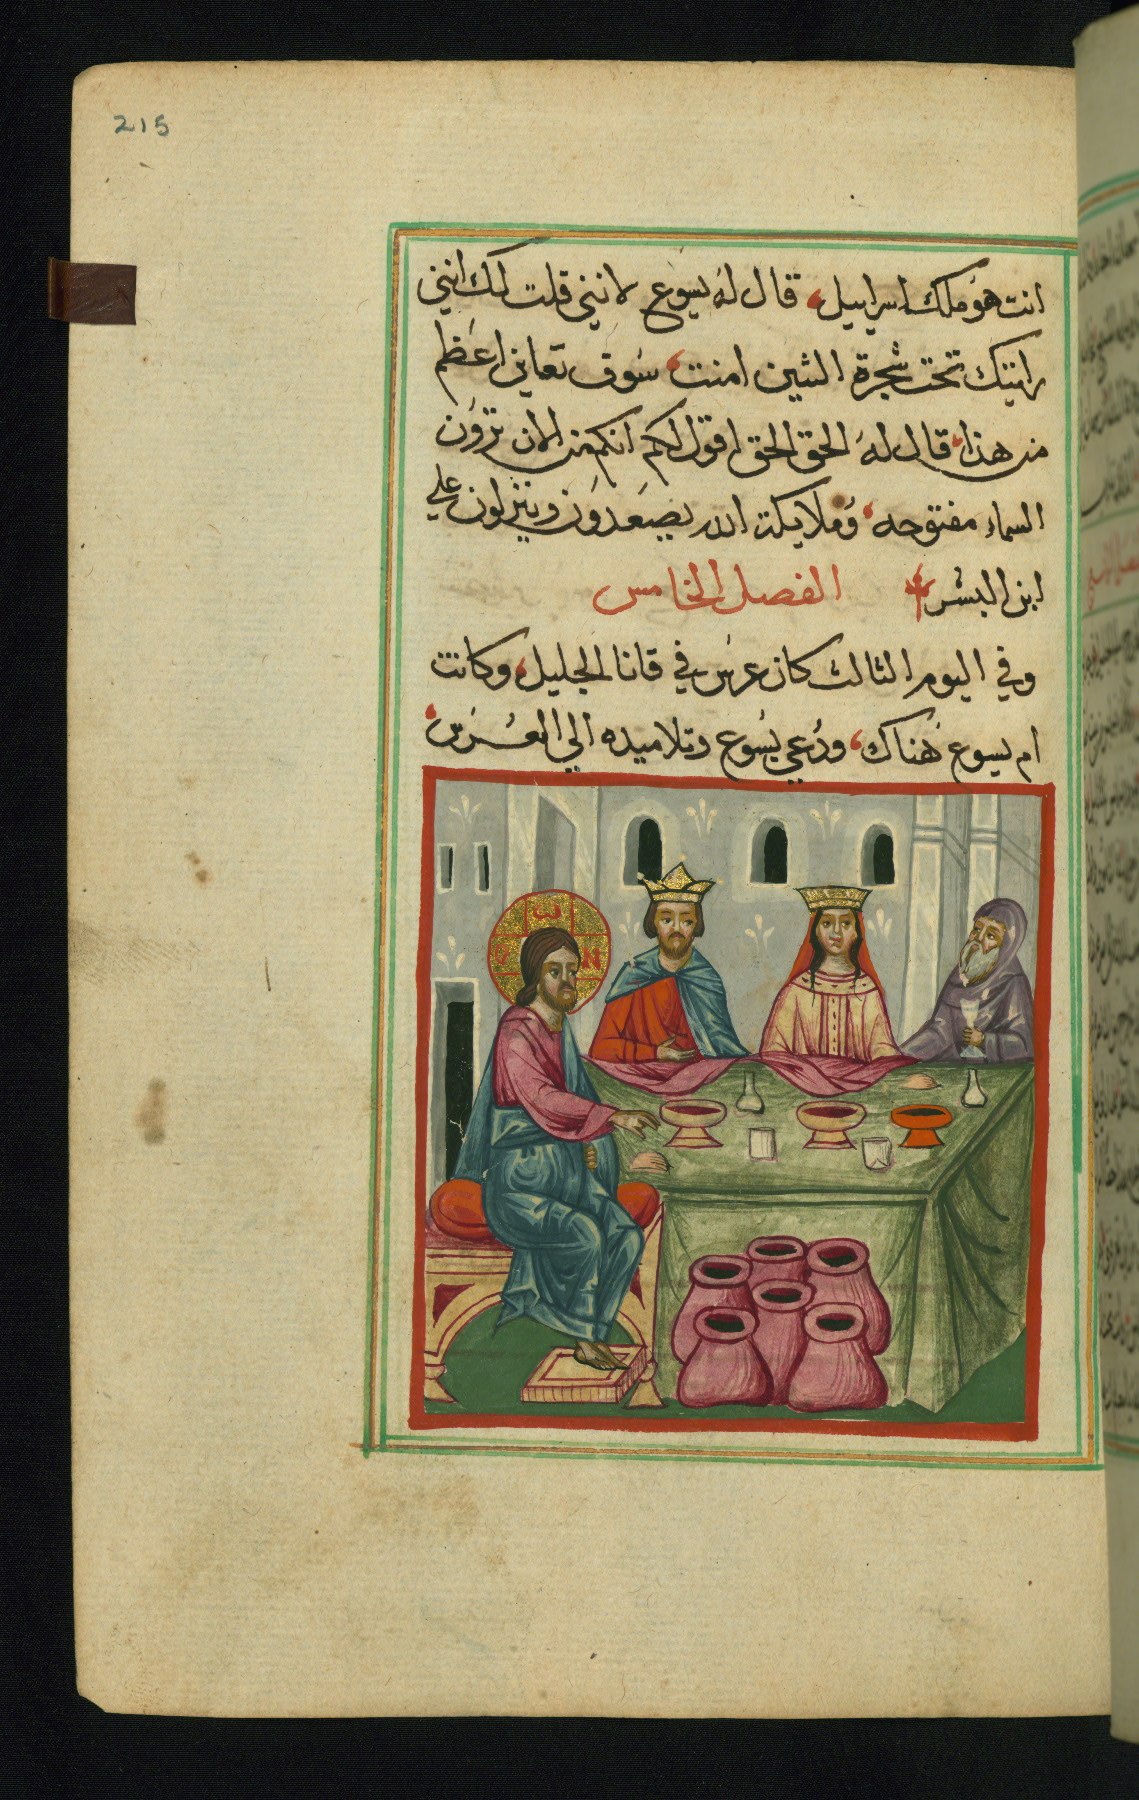 215
انت هو ملك اسراييل، قال له يسوع لانني قلت لك انني
رايتك تحت شجرة التين امنت، سوف تعاين اعظم
من هذا، قال له الحق الحق اقول لكم انكم من الان ترون
السماء مفتوحه، وملايكت الله يصعدون وينزلون علي
ابن البشر الفصل الخامس
وفي اليوم الثالث كان عرس في قانا الجليل، وكانت
ام يسوع هناك، ودعي يسوع وتلاميده الي العرس،
Ѡ
N